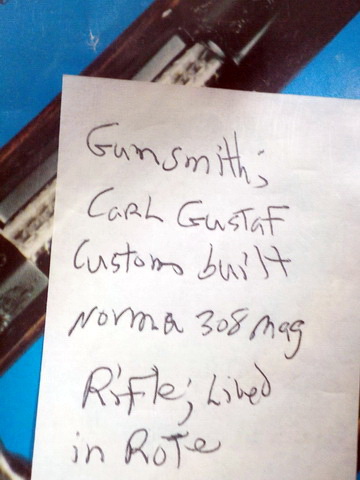 Gunsmith;
Carl Gustaf
Custom built
Norma 308 mag
Rifle; Lived
in Rote